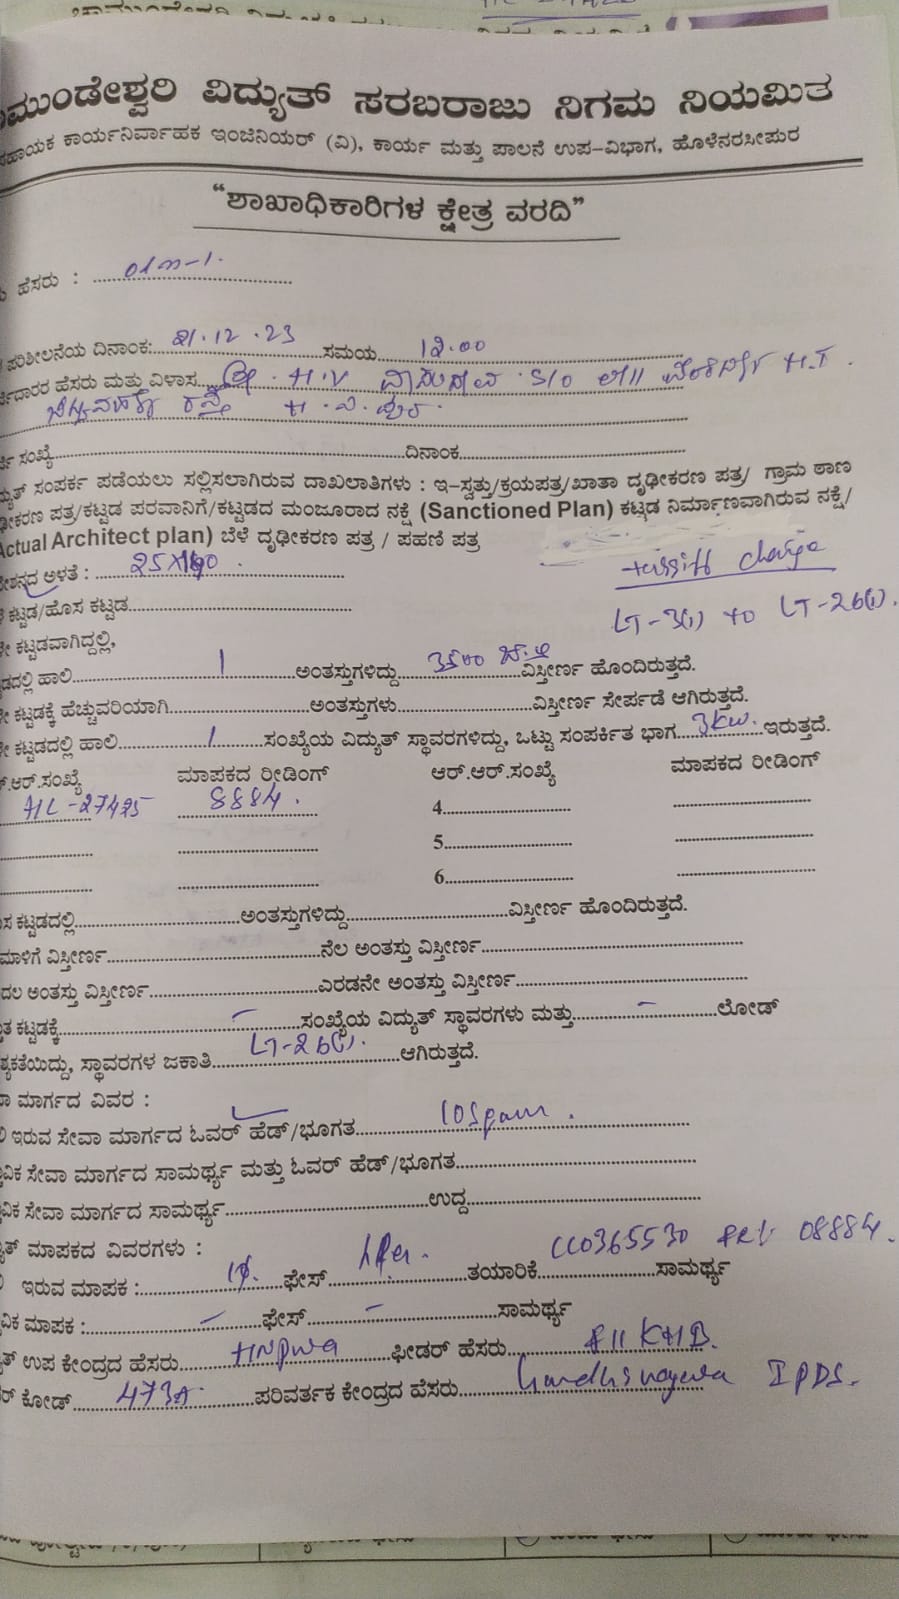 ಮುಂಡೇಶ್ವರಿ ವಿದ್ಯುತ್ ಸರಬರಾಜು ನಿಗಮ ನಿಯಮಿತ
ಸಹಾಯಕ ಕಾರ್ಯನಿರ್ವಾಹಕ ಇಂಜಿನಿಯರ್ (ವಿ), ಕಾರ್ಯ ಮತ್ತು ಪಾಲನೆ ಉಪ-ವಿಭಾಗ, ಹೊಳೆನರಸೀಪುರ
“ಶಾಖಾಧಿಕಾರಿಗಳ ಕ್ಷೇತ್ರ ವರದಿ”
ಹೆಸರು :
ಪರಿಶೀಲನೆಯ ದಿನಾಂಕ: 21.12.23 ಸಮಯ 12.00
ದಾರರ ಹೆಸರು ಮತ್ತು ವಿಳಾಸ H.V S/O H.T.
ಸಂಖ್ಯೆ ದಿನಾಂಕ
ಸಂಪರ್ಕ ಪಡೆಯಲು ಸಲ್ಲಿಸಲಾಗಿರುವ ದಾಖಲಾತಿಗಳು : ಇ-ಸ್ವತ್ತು/ಕ್ರಯಪತ್ರ/ಖಾತಾ ದೃಢೀಕರಣ ಪತ್ರ/ ಗ್ರಾಮ ಠಾಣ
ಢೀಕರಣ ಪತ್ರ/ಕಟ್ಟಡ ಪರವಾನಿಗೆ/ಕಟ್ಟಡದ ಮಂಜೂರಾದ ನಕ್ಷೆ (Sanctioned Plan) ಕಟ್ಟಡ ನಿರ್ಮಾಣವಾಗಿರುವ ನಕ್ಷೆ/
Actual Architect plan) ಬೆಳೆ ದೃಢೀಕರಣ ಪತ್ರ / ಪಹಣಿ ಪತ್ರ
ಅಳತೆ :
ಕಟ್ಟಡ/ಹೊಸ ಕಟ್ಟಡ LT-3(i) to
ಕಟ್ಟಡವಾಗಿದ್ದಲ್ಲಿ,
ಡದಲ್ಲಿ ಹಾಲಿ 1 ಅಂತಸ್ತುಗಳಿದ್ದು ವಿಸ್ತೀರ್ಣ ಹೊಂದಿರುತ್ತದೆ.
ಕಟ್ಟಡಕ್ಕೆ ಹೆಚ್ಚುವರಿಯಾಗಿ ಅಂತಸ್ತುಗಳು ವಿಸ್ತೀರ್ಣ ಸೇರ್ಪಡೆ ಆಗಿರುತ್ತದೆ.
ಕಟ್ಟಡದಲ್ಲಿ ಹಾಲಿ 1 ಸಂಖ್ಯೆಯ ವಿದ್ಯುತ್ ಸ್ಥಾವರಗಳಿದ್ದು, ಒಟ್ಟು ಸಂಪರ್ಕಿತ ಭಾಗ 3kw. ಇರುತ್ತದೆ.
ಆರ್.ಸಂಖ್ಯೆ ಮಾಪಕದ ರೀಡಿಂಗ್ ಆರ್.ಆರ್.ಸಂಖ್ಯೆ ಮಾಪಕದ ರೀಡಿಂಗ್
HL-27425 8884. 4
5
6
ಕಟ್ಟಡದಲ್ಲಿ ಅಂತಸ್ತುಗಳಿದ್ದು ವಿಸ್ತೀರ್ಣ ಹೊಂದಿರುತ್ತದೆ.
ಮಾಳಿಗೆ ವಿಸ್ತೀರ್ಣ ನೆಲ ಅಂತಸ್ತು ವಿಸ್ತೀರ್ಣ
ದಲ ಅಂತಸ್ತು ವಿಸ್ತೀರ್ಣ ಎರಡನೇ ಅಂತಸ್ತು ವಿಸ್ತೀರ್ಣ
ತ ಕಟ್ಟಡಕ್ಕೆ - ಸಂಖ್ಯೆಯ ವಿದ್ಯುತ್ ಸ್ಥಾವರಗಳು ಮತ್ತು - ಲೋಡ್
ಶ್ಯಕತೆಯಿದ್ದು, ಸ್ಥಾವರಗಳ ಜಕಾತಿ ಆಗಿರುತ್ತದೆ.
ಮಾರ್ಗದ ವಿವರ :
ಇರುವ ಸೇವಾ ಮಾರ್ಗದ ಓವರ್ ಹೆಡ್/ಭೂಗತ
ವಿಕ ಸೇವಾ ಮಾರ್ಗದ ಸಾಮರ್ಥ್ಯ ಮತ್ತು ಓವರ್ ಹೆಡ್/ಭೂಗತ
ವಿಕ ಸೇವಾ ಮಾರ್ಗದ ಸಾಮರ್ಥ್ಯ ಉದ್ದ
ತ್ ಮಾಪಕದ ವಿವರಗಳು : CC0365530 08884.
ಇರುವ ಮಾಪಕ : 1φ. ಫೇಸ್ ತಯಾರಿಕೆ ಸಾಮರ್ಥ್ಯ
ವಿಕ ಮಾಪಕ : - ಫೇಸ್ - ಸಾಮರ್ಥ್ಯ
ತ್ ಉಪ ಕೇಂದ್ರದ ಹೆಸರು HNpura ಫೀಡರ್ ಹೆಸರು F11 KHB.
ರ್ ಕೋಡ್ 473A. ಪರಿವರ್ತಕ ಕೇಂದ್ರದ ಹೆಸರು IPDS.